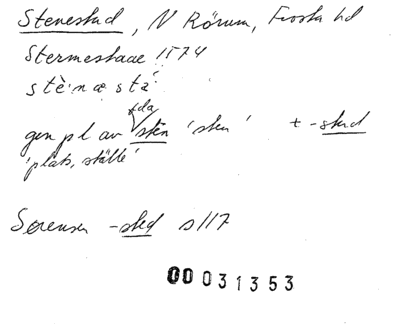 Stenestad, N Rörum, Frosta hd
Stermestade 1574
stè:næsta
da
gen pl av sten 'sten' + -stad
'plats, ställe'
Sørensen -sted s 117
00 031353